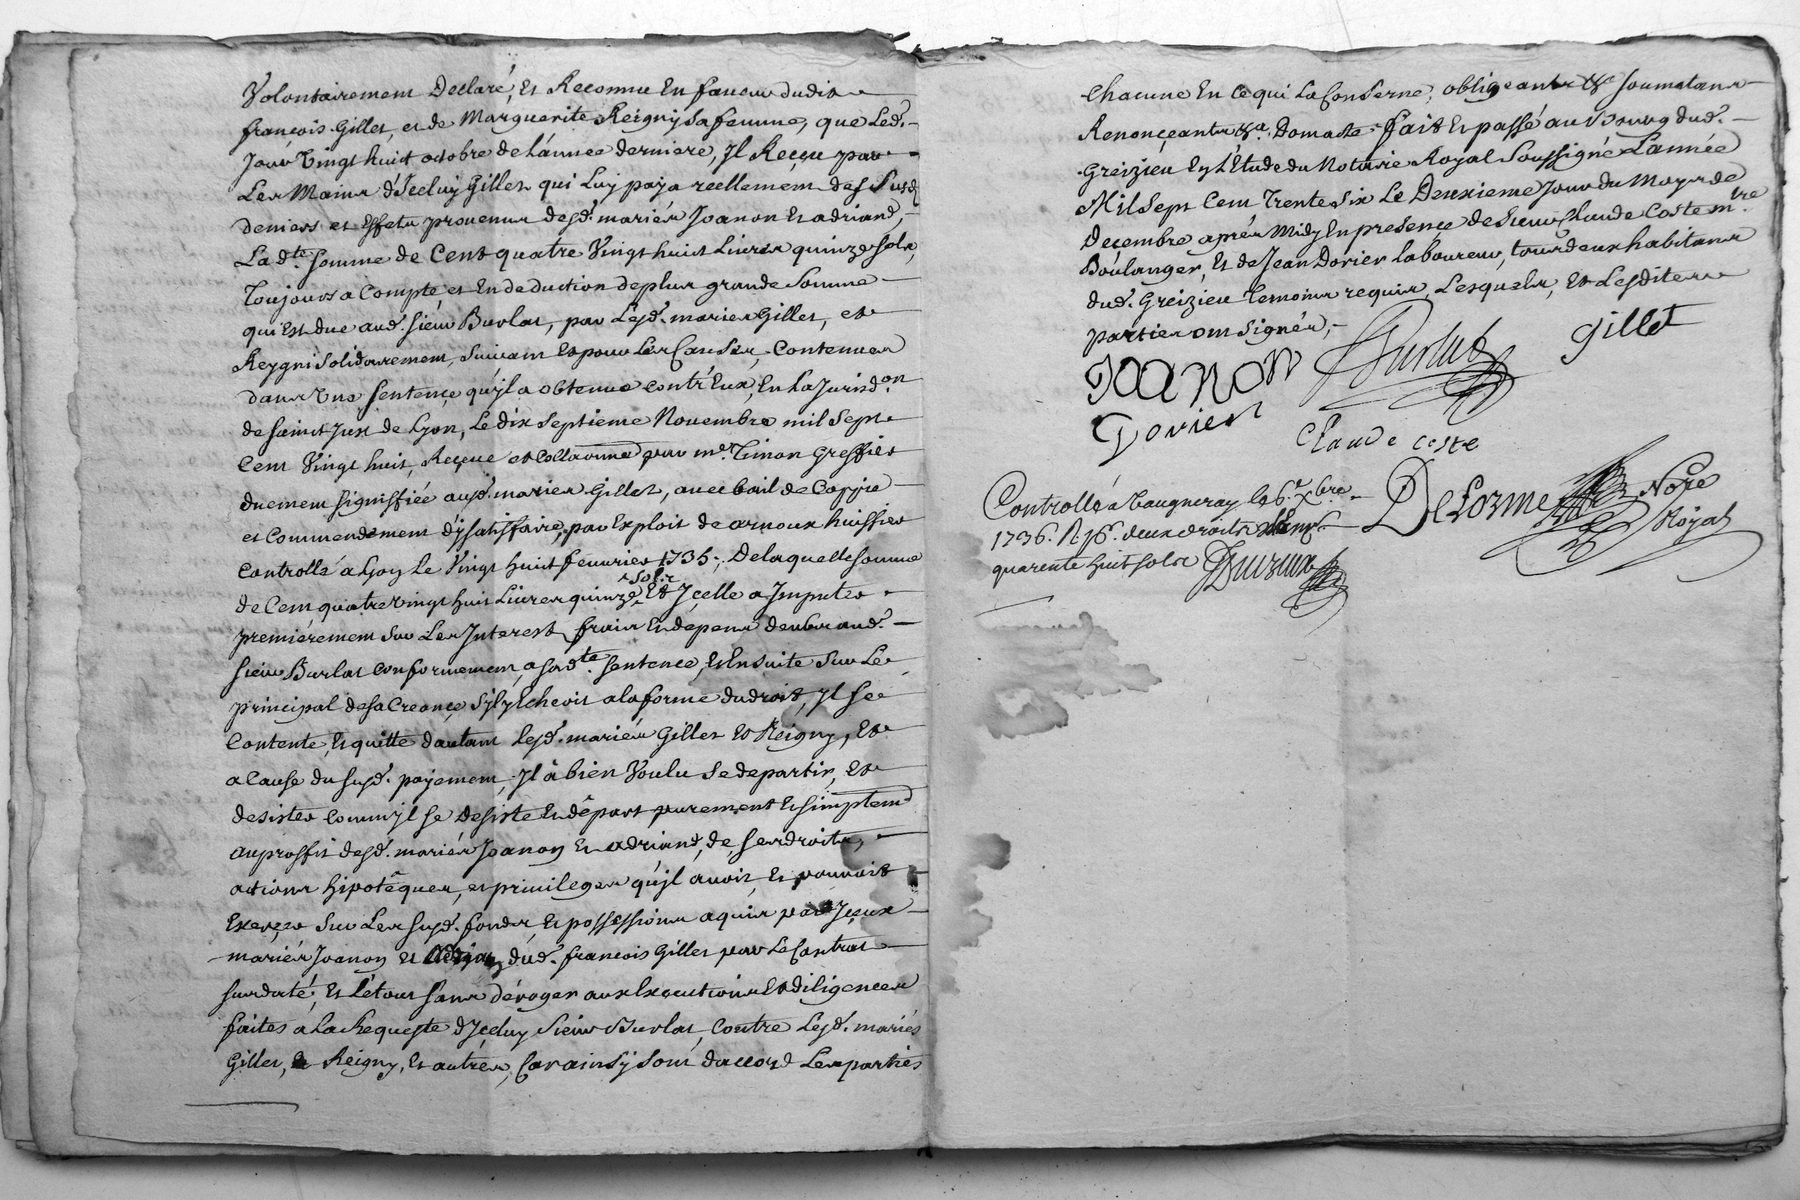 Volontairement Declaré, Et Reconnu En faveur dudit
françois Gillet, et de Marguerite Reigny sa femme, que Led.
Jour Vingt huit octobre de L'année derniere, Jl Reçeu par
Les Mains d'Jceluy Gillet qui Luy paya reellement des Susd
deniers et Effets provenus desd. mariés Joanon Et adriand,
La dte. somme de Cent quatre Vingt huit Livres quinze sols,
Toujours a Compte et En deduction de plus grande Somme
qui Est due aud. sieur Burlat, par Lesd. mariés Gillet, et
Reygni solidairement, suivant Et pour Les Causes, Contenues
dans Une sentence qu'jl a obtenue contr'Eux, En La Jurisdon
de saint Just de Lyon, Le dix septieme Novembre mil sept
Cent Vingt huit, Reçeue et Collationné par me. Timon Greffier
duement signiffiée ausd. mariés Gillet, avec bail de Coppie
et Commendement d'y satisffaire, par Exploit de arnoux huissier
Controllé a Lyon Le Vingt huit feuvrier 1735; De laquelle somme
de Cent quatre vingt huit Livres quinze sols Et Jçelle a Jmputer
premiérement sur Les Jnterest frais Et depens deubs aud.
sieur Burlat conformement, a sadte. sentence, Et Ensuite sur Le
principal de sa Creance, s'jl y Echeoit a la forme du droit, Jl se
Contente, Et quitte d'autant lesd. mariés Gillet Et Reigny, Et
a Cause du susd. payement, Jl à bien Voulu se departir, Et
desister comm'jl se desiste Et départ purement Et simplemt
au proffit desd. mariés Joanon Et adriand, de, ses droits,
actions hipotêques, et privileges qu'jl avoit, Et pouvoit
Exerçer sur Les susd. fonds, Et possessions aquis par Jçeux
mariés Joanon Et dud. françois Gillet par Le Contrat
susdaté, Et Le tout sans déroger aux Executions Et diligences
faites a La Requeste d'Jçeluy sieur Burlat, Contre Lesd. mariés
Gillet, Et Reigny, Et autres, Car ainsy sont d'accord Les parties
Chacune En Ce qui La Conserne, obligeants &c soumetans
Renonçeants &a. Domaste fait Et passé au Bourg dud.
Greizieu En L'Etude du Notaire Royal Soussigné L'année
Mil Sept Cent Trente six Le Deuxieme Jour du Moys de
Decembre aprés Midy En presence de Sieur Claude Coste mtre
Boulanger, Et de Jean Dorier Laboureur, tous deux habitans
dud. Greizieu Temoins requis, Lesquels, Et Lesdites
parties ont signés,
JOANON Burlat gillet
Dorier
Claude Coste
Controllé a Vaugneray le 6e. Xbre
1736. R 16s. deux droits
quarente huit sols
Delorme Nore
Royal